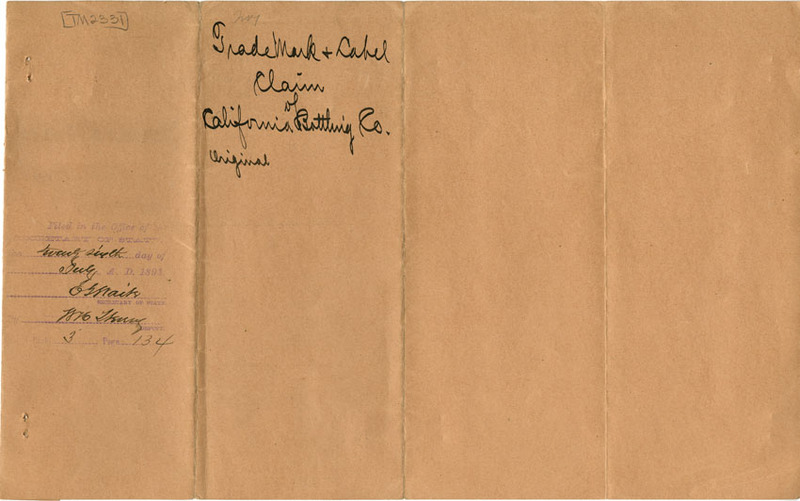 TM2331
Trade Mark & Label
Claim
of
California Bottling Co.
Original
Filed in the Office of the
SECRETARY OF STATE
twenty sixth day of
July A. D. 189
SECRETARY OF STATE
DEPUTY
3 Page 134